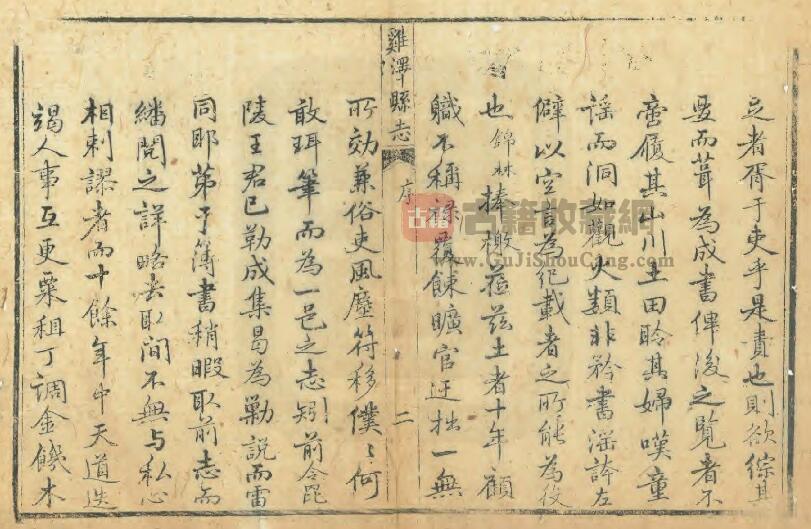 之者胥于吏乎是責也則欲綜其
要而葺為成書俾後之覽者不
啻履其山川土田聆其婦嘆童
謡而洞如觀火類非矜書滛誇左
僻以空言為紀載者之所能為役
也錦林捧檄菈茲土者十年顧
職不稱祿覆餗曠官迂拙一無
雞澤縣志
序
二
所効兼俗吏風塵符移僕〻何
敢珥筆而為一邑之志矧前令毘
陵王君已勒成集曷為勦說而雷
同耶第于簿書稍暇取前志而
繙閱之詳略去取間不無与私心
相刺謬者而十餘年中天道迭
竭人事互更粟租丁調金饑木
古籍
古籍收藏網
www.GuJiShouCang.com